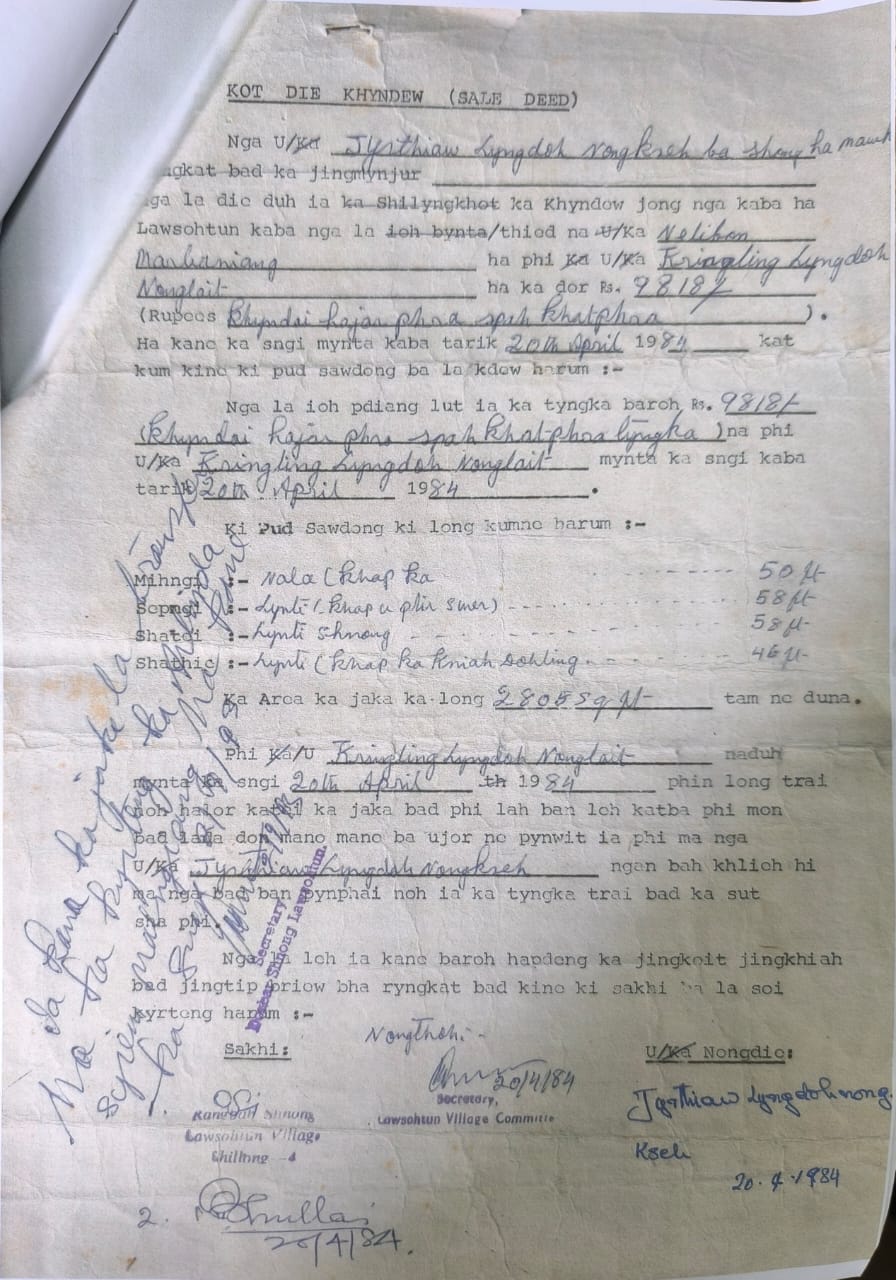 KOT DIE KHYNDEW (SALE DEED)
Nga U/Ka Jyrthiaw Lyngdoh Nongkseh ba shong ha mawk
ngkat bad ka jingmynjur
ga la die duh ia ka Shilyngkhot ka Khyndew jong nga kaba ha
Lawsohtun kaba nga la ioh bynta/thied na U/Ka Nelibon
Marbaniang ha phi Ka U/Ka Kringling Lyngdoh
Nonglait ha ka dor Rs. 9818/-
(Rupees khyndai hajar phra spah khatphra ).
Ha kane ka sngi mynta kaba tarik 20th April 1984 kat
kum kine ki pud sawdong ba la kdew harum :-
Nga la ioh pdiang lut ia ka tyngka baroh Rs. 9818/-
(khyndai hajar phra spah khatphra tyngka )na phi
U/Ka Kringling Lyngdoh Nonglait mynta ka sngi kaba
tarik 20th April 1984 .
Ki Pud Sawdong ki long kumne harum :-
Mihngi :- Nala (khap ka 50 ft
Sepngi :- Lynti (khap u 58 ft
Shatei :- Lynti Shnong 58 ft
Shathie :- Lynti (khap ka Kniah Dohling 46 ft
Ka Area ka jaka ka long 2805 sq ft tam ne duna.
Phi Ka/U Kringling Lyngdoh Nonglait naduh
mynta ka sngi 20th April th 1984 phin long trai
noh halor kathi ka jaka bad phi lah ban leh katba phi mon
bad lada don mano mano ba ujor ne pynwit ia phi ma nga
U/Ka Jyrthiaw Lyngdoh Nongkseh ngan bah khlieh hi
ma nga bad ban pynphai noh ia ka tyngka trai bad ka sut
sha phi.
Nga la leh ia kane baroh hapdeng ka jingkoit jingkhiah
bad jingtip briew bha ryngkat bad kine ki sakhi ba la soi
kyrteng harum :-
Sakhi:
Nongthoh:-
U/Ka Nongdie:
20/4/84
Secretary,
Lawsohtun Village Committe
Rangbah Shnong
Lawsohtun Village
Shillong -4
Jyrthiaw Lyngdoh nong
Kseh
20.4.1984
2.
20/4/84.
Ia kane ka jaka la
Secretary
Dorbar Shnong Lawsohtun.